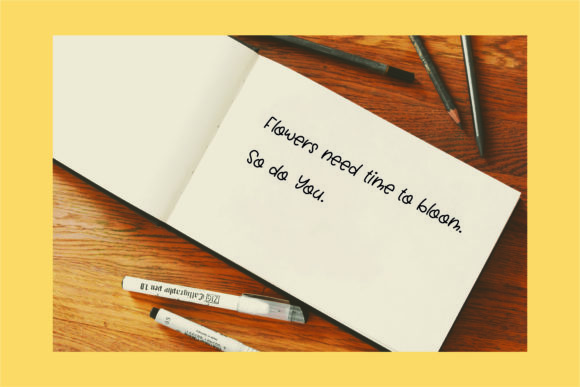 Flowers need time to bloom.
So do You.
ZIG Calligraphy pen 10
05